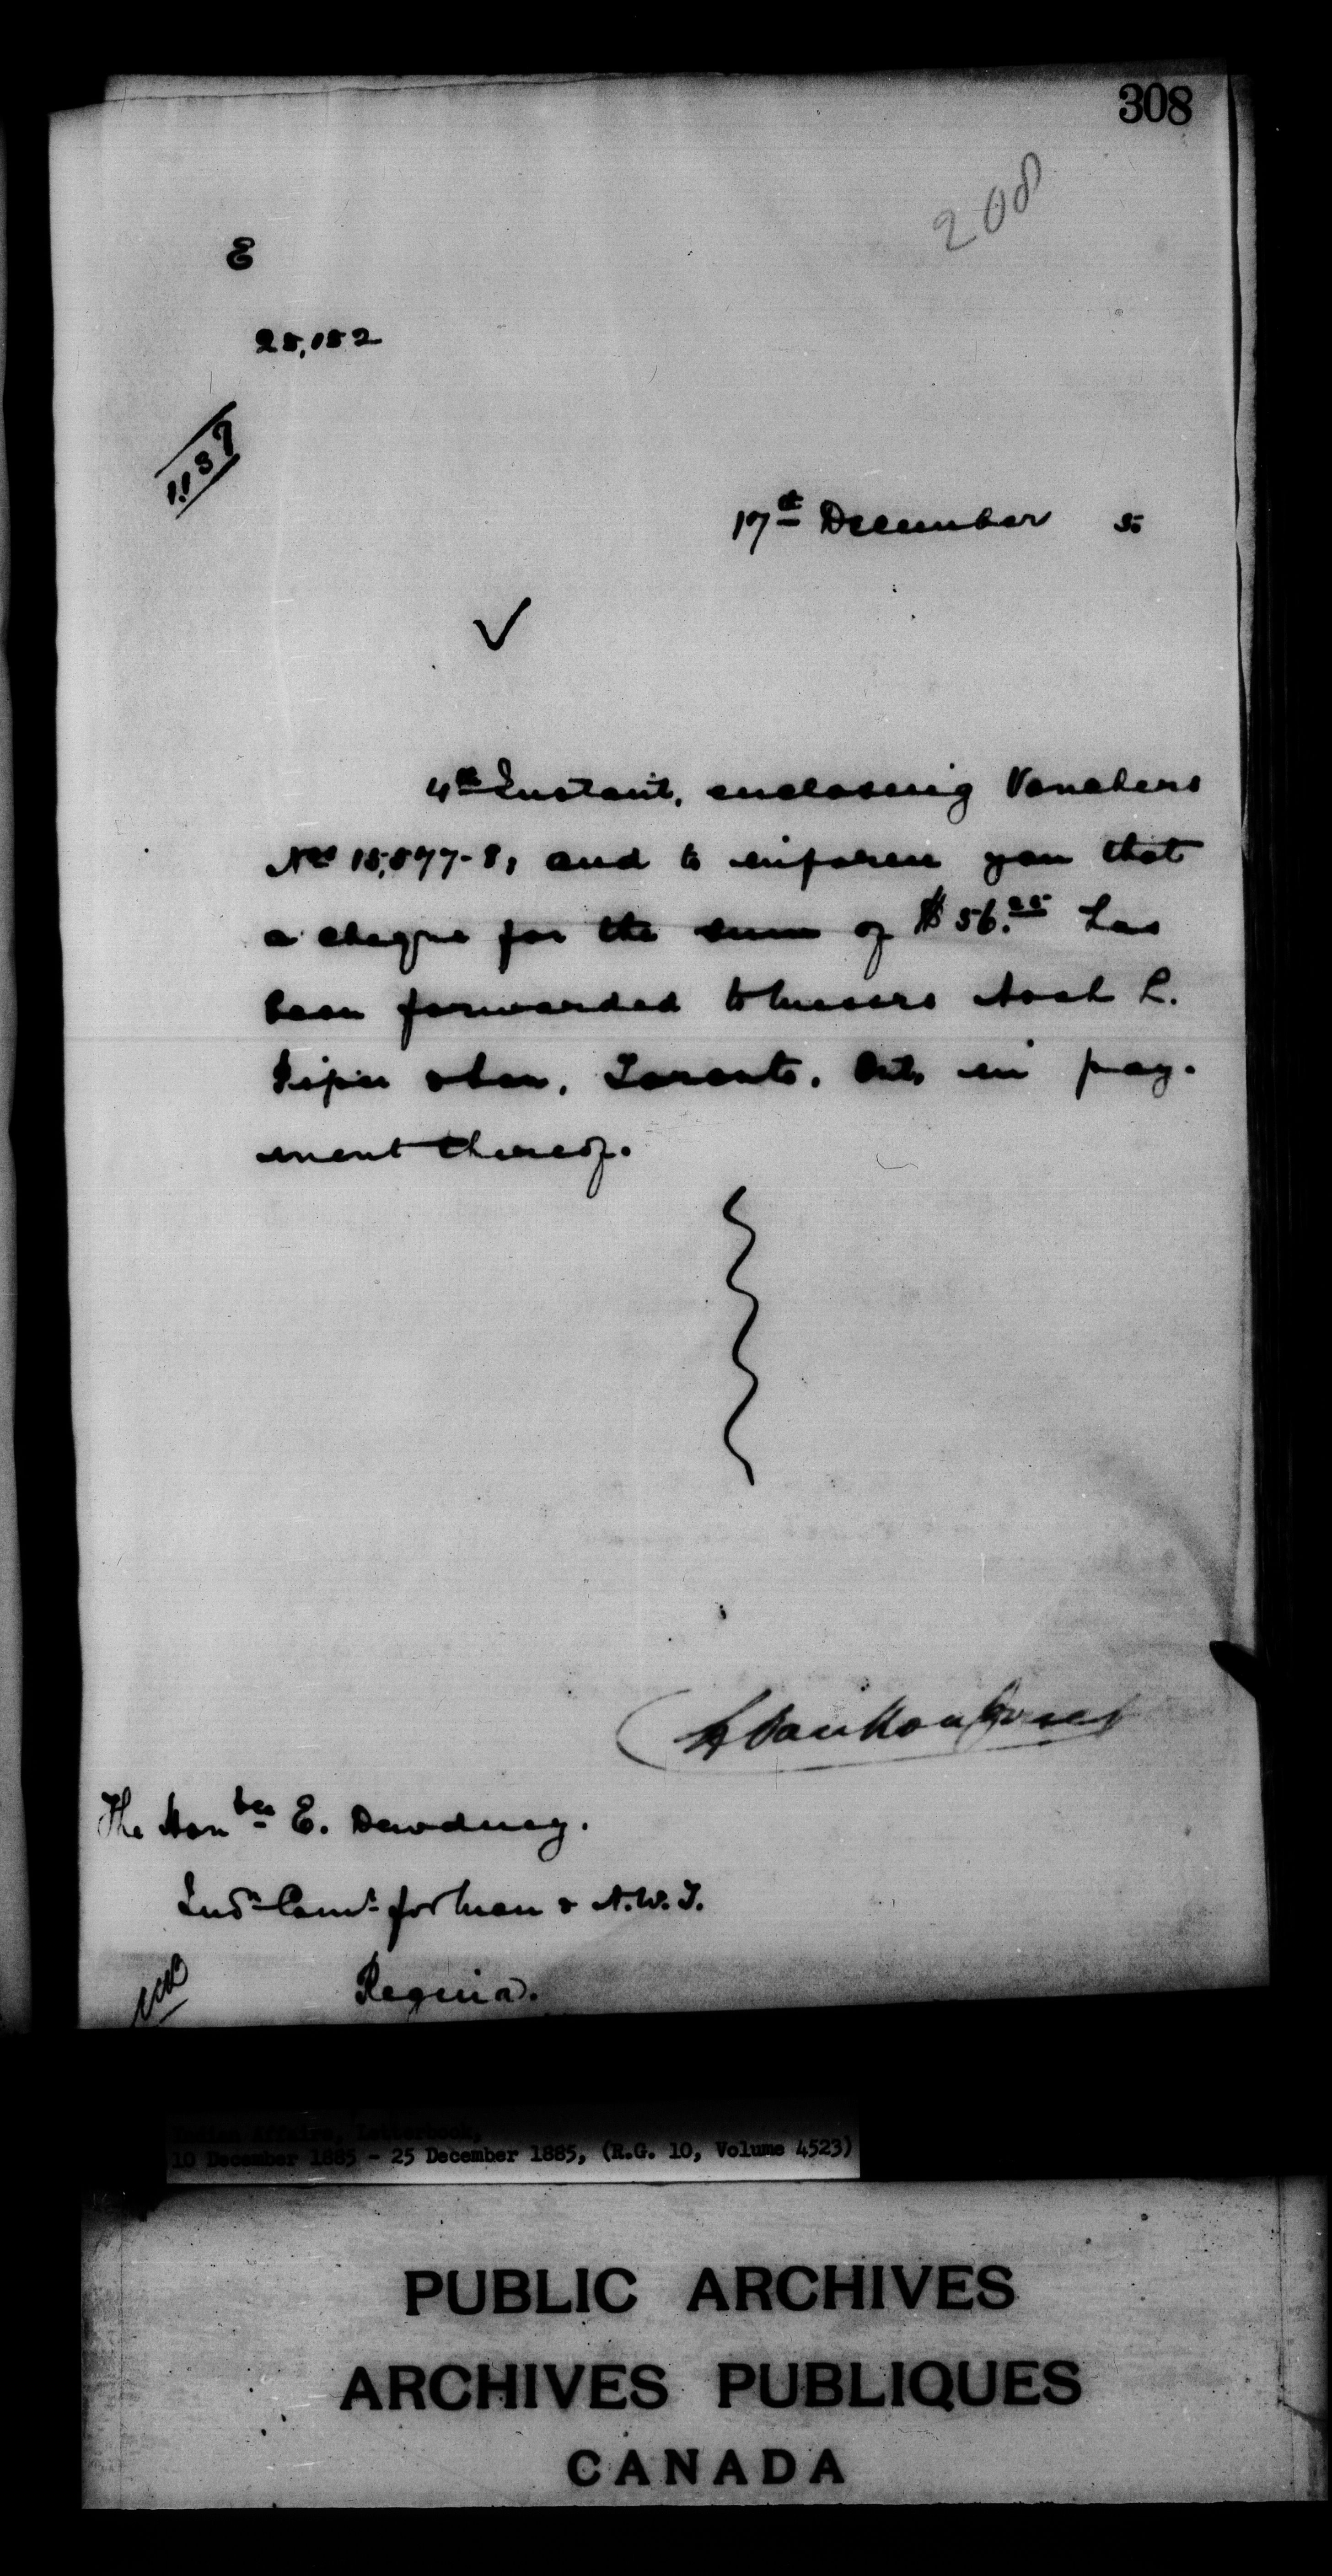 308
208
E
25,152
1137
17th December 5
4th Instant, enclosing Vouchers
Nos 15,577-8, and to inform you that
a cheque for the sum of $56.25 has
been forwarded to Messrs Noah L.
Piper & Son, Toronto, Ont, in pay-
ment thereof.
L. Vankoughnet
The Honble E. Dewdney.
Indn Comr for Man & N.W.T.
Regina.
Indian Affairs, Letterbook,
10 December 1885 - 25 December 1885, (R.G. 10, Volume 4523)
PUBLIC ARCHIVES
ARCHIVES PUBLIQUES
CANADA